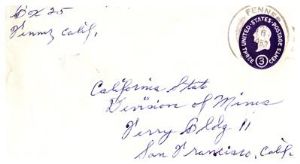 Box 25
Fenner Calif.
FENNER
UNITED STATES POSTAGE
THREE 3 CENTS
California State
Division of Mines
Ferry Bldg 11
San Francisco, Calif.